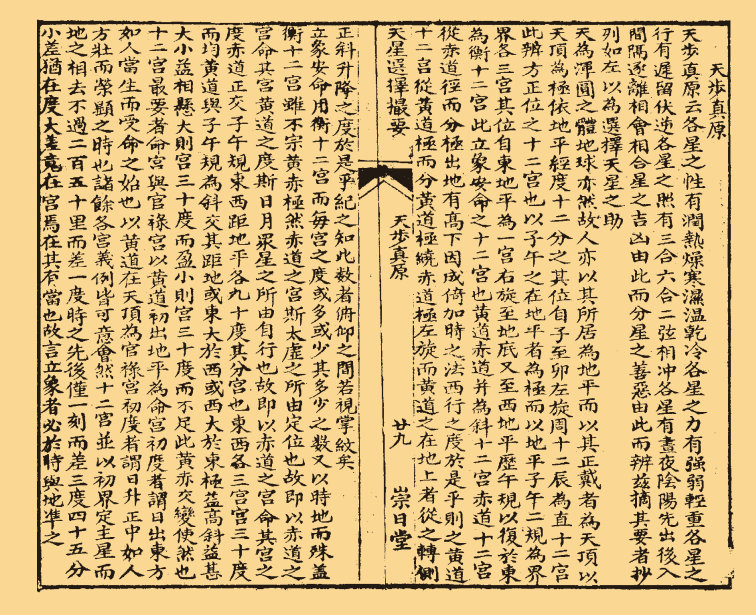 天步真原
天步真原云各星之性有潤熱燥寒濕温乾冷各星之力有強弱輕重各星之
行有遲留伏逆各星之照有三合六合二弦相冲各星有晝夜陰陽先出後入
間隔逐離相會相合星之吉凶由此而分星之善惡由此而辨兹摘其要者抄
列如左以為選擇天星之助
天為渾圓之體地球亦然故人亦以其所居為地平而以其正戴者為天頂以
天頂為極依地平經度十二分之其位自子至卯左旋周十二辰為直十二宫
此辨方正位之十二宫也以子午之在地平者為極而以地平子午二規為界
界各三宫其位自東地平為一宫右旋至地底又至西地平歷午規以復於東
為衡十二宫此立象安命之十二宫也黄道赤道并為斜十二宫赤道十二宫
從赤道徑而分極出地有高下因成倚加時之法西行之度於是乎則之黄道
十二宫從黄道極而分黄道極繞赤道極左旋而黄道之在地上者從之轉側
天星選擇撮要
天步真原
廿九
崇日堂
正斜升降之度於是乎紀之知此數者俯仰之間若視掌紋矣
立象安命用衡十二宫而每宫之度或多或少其多少之数又以時地而殊蓋
衡十二宫雖不宗黄赤極然赤道之宫斯太虚之所由定位也故即以赤道之
宫命其宫黄道之度斯日月衆星之所由自行也故即以赤道之宫命其宫之
度赤道正交子午規東西距地平各九十度其分宫也東西各三宫宫三十度
而均黄道與子午規為斜交其距地或東大於西或西大於東極益高斜益甚
大小益相懸大則宫三十度而盈小則宫三十度而不足此黄赤交變使然也
十二宫最要者命宫與官祿宫以黄道初出地平為命宫初度者謂日出東方
如人當生而受命之始也以黄道在天頂為官祿宫初度者謂日升正中如人
方壯而榮顯之時也諸餘各宫義例皆可意會然十二宫並以初界定主星而
地之相去不過二百五十里而差一度時之先後僅一刻而差三度四十五分
小差猶在度大差竟在宫焉在其有當也故言立象者必於時與地準之